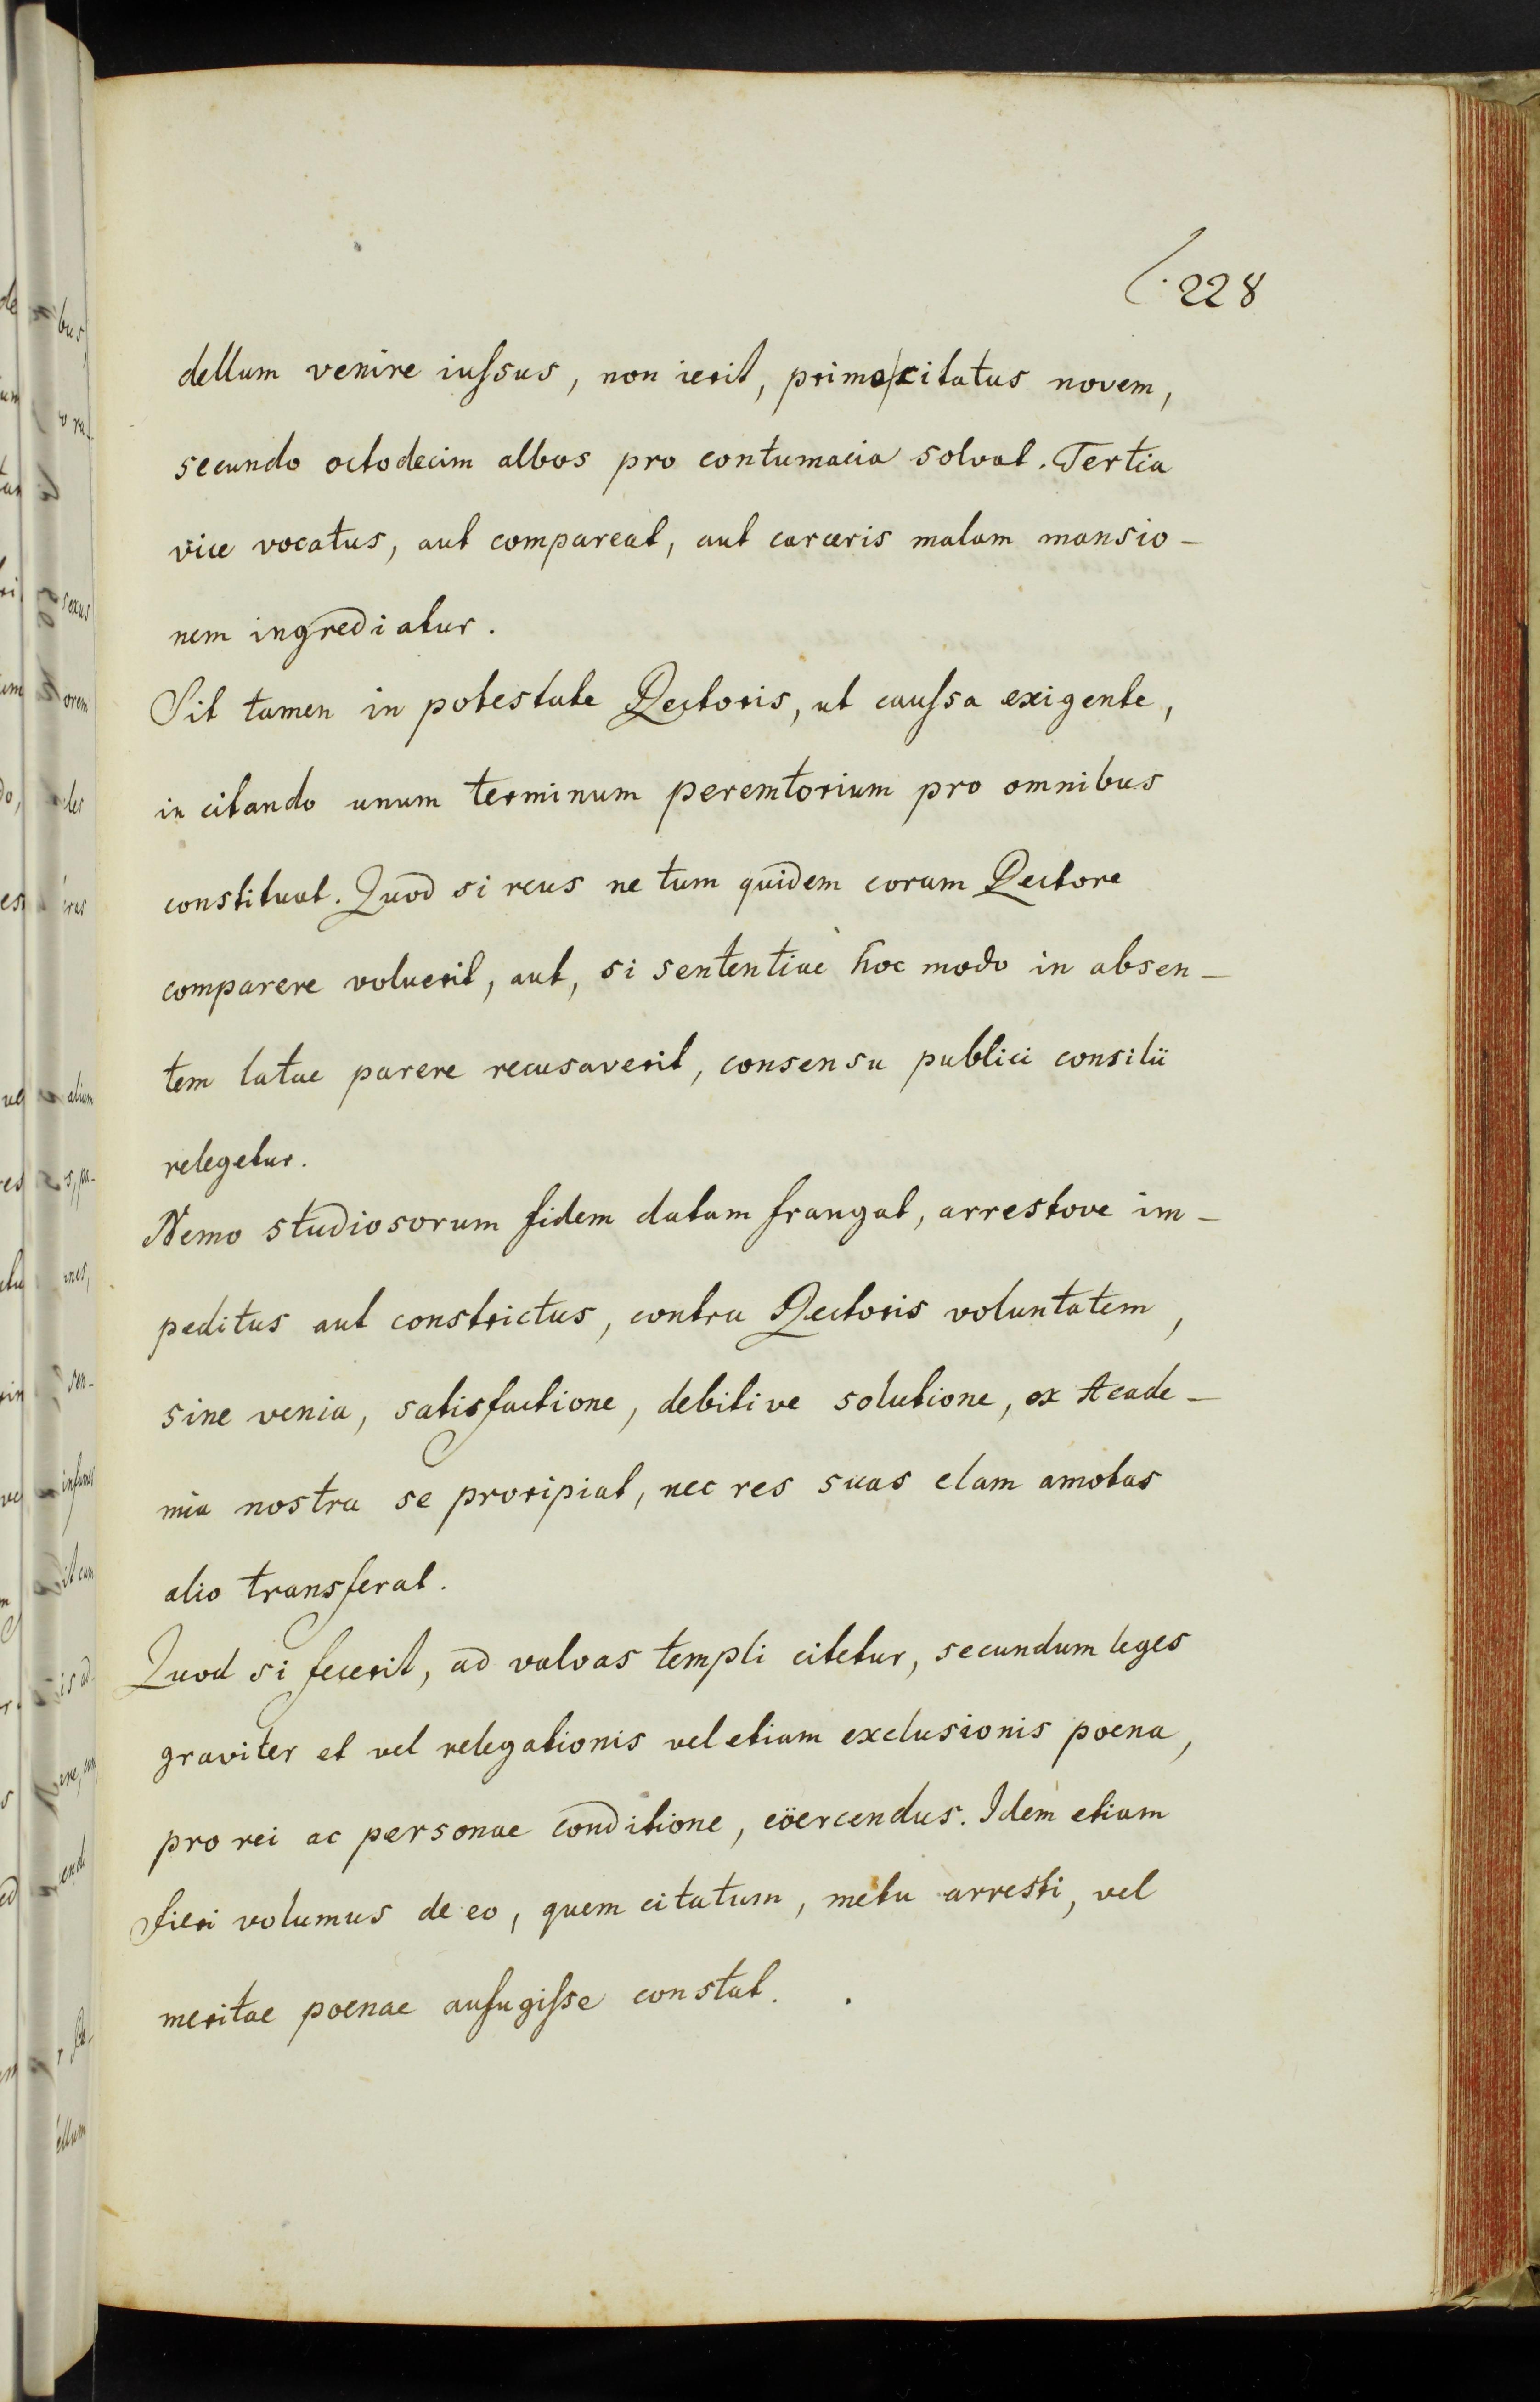 228
dellum venire iussus, non ierit, primo citatus novem,
secundo octodecim albos pro contumacia solvat. Tertia
vice vocatus, aut compareat, aut carceris malam mansio-
nem ingrediatur.
Sit tamen in potestate Rectoris, ut caussa exigente,
in citando unum terminum peremtorium pro omnibus
constituat. Quod si reus ne tum quidem coram Rectore
comparere voluerit, aut, si sententiae hoc modo in absen-
tem latae parere recusaverit, consensu publici consilii
relegetur.
Nemo studiosorum fidem datam frangat, arrestove im-
peditus aut constrictus, contra Rectoris voluntatem,
sine venia, satisfactione, debitive solutione, ex Acade-
mia nostra se proripiat, nec res suas clam amotas
alio transferat.
Quod si fecerit, ad valvas templi citetur, secundum leges
graviter et vel relegationis vel etiam exclusionis poena,
pro rei ac personae conditione, cöercendus. Idem etiam
fieri volumus de eo, quem citatum, metu arresti, vel
meritae poenae aufugisse constat.